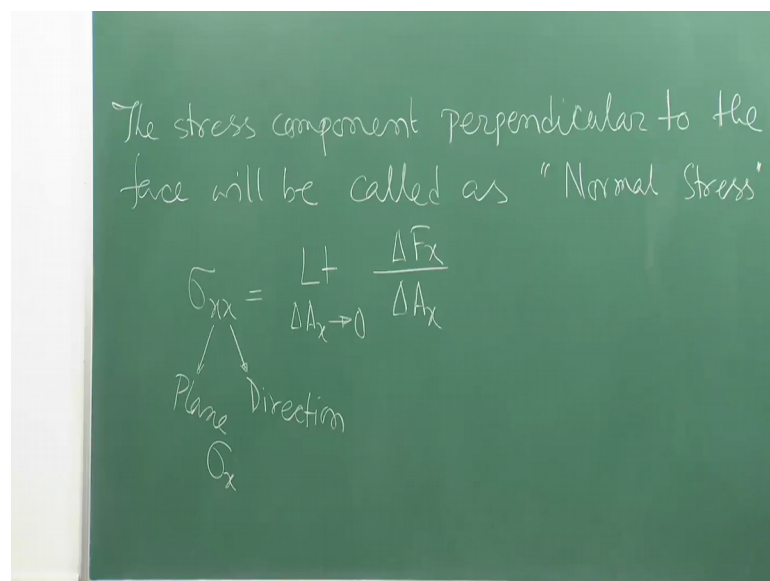 The stress component perpendicular to the
face will be called as "Normal Stress"
σxx = Lt ΔAx→0 ΔFx / ΔAx
Plane Direction
σx